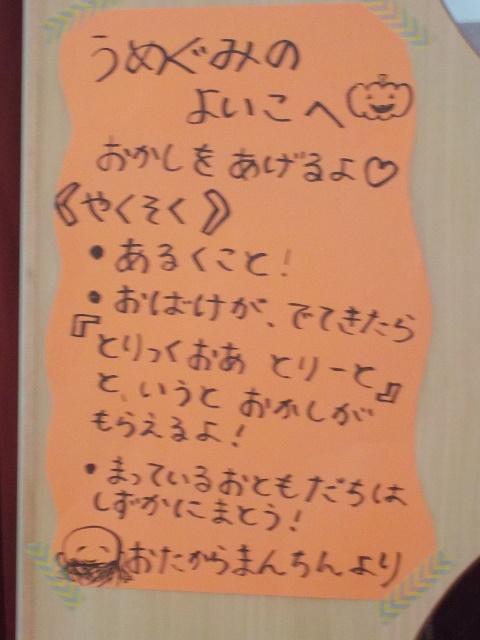 うめぐみの
よいこへ
おかしを あげるよ♡
《やくそく》
・あるくこと!
・おばけが、でてきたら
『とりっくおあ とりーと』
と、いうと おかしが
もらえるよ!
・まっているおともだちは
しずかにまとう!
おたからまんちんより